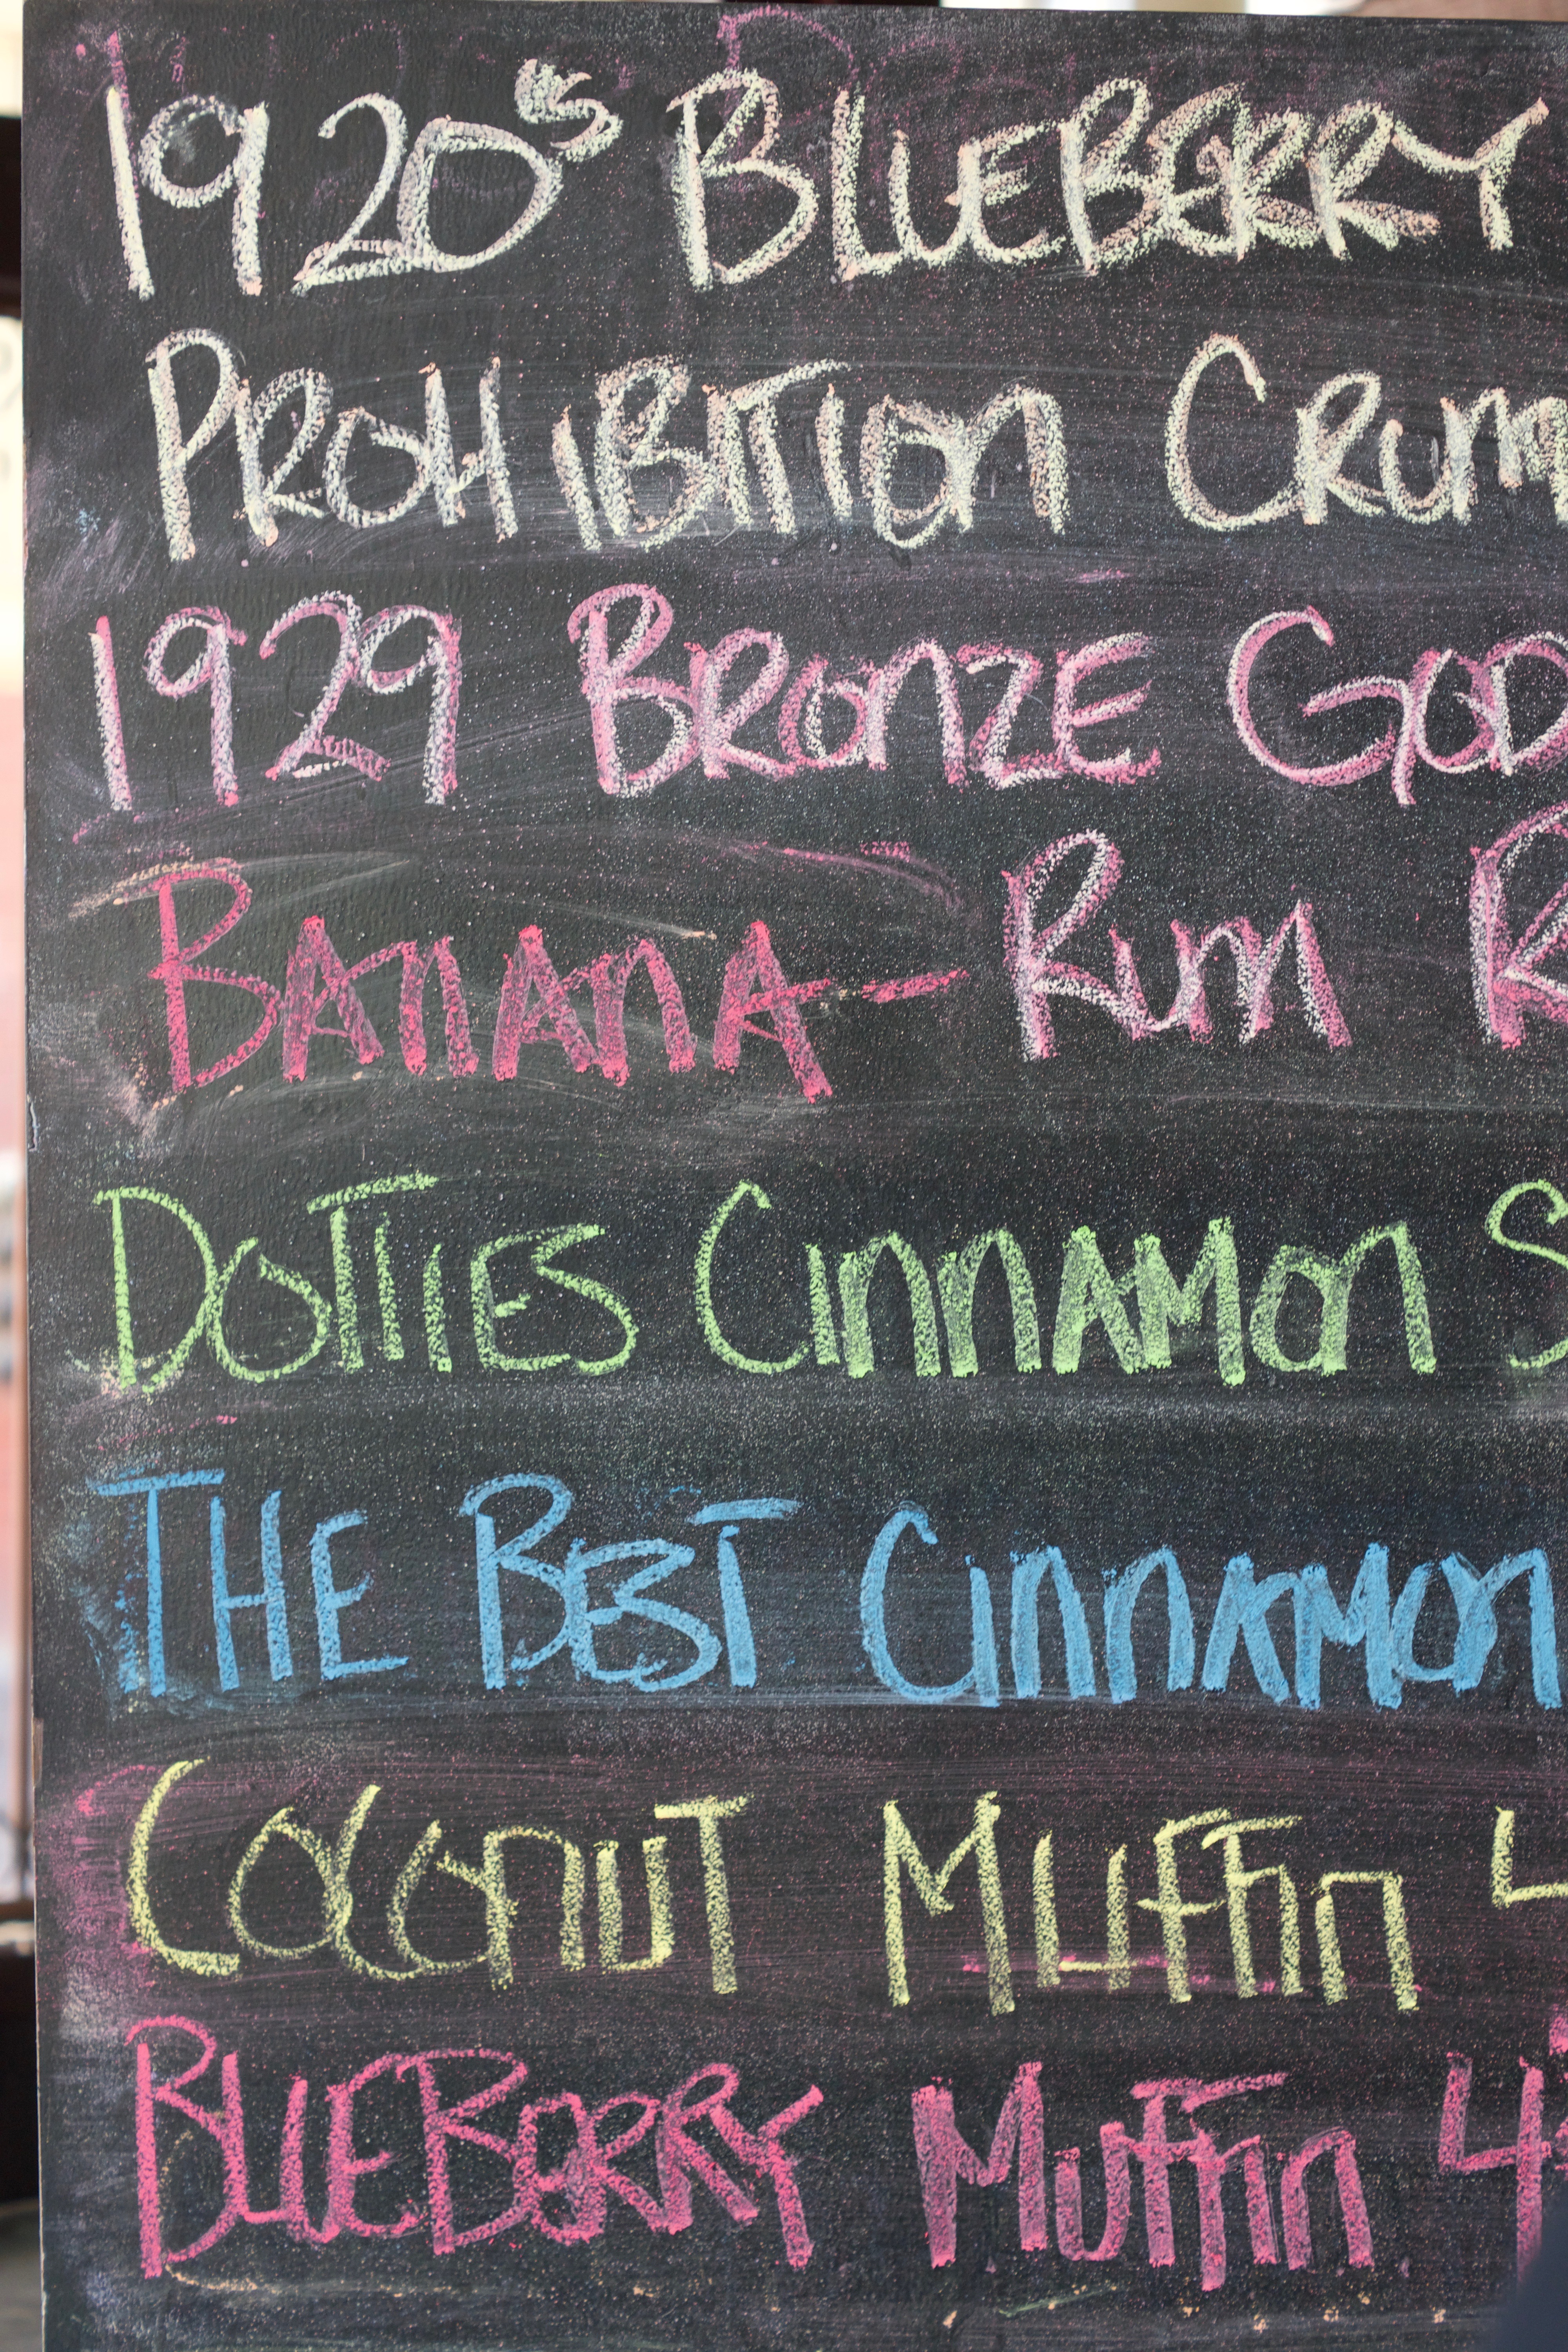 1920s BLUEBERRY
PROHIBITION CRUM
1929 BRONZE GOD
BANANA - RUM R
DOTTIES CINNAMON S
THE BEST CINNAMON
COCONUT MUFFIN 4
BLUEBERRY MUFFIN 4